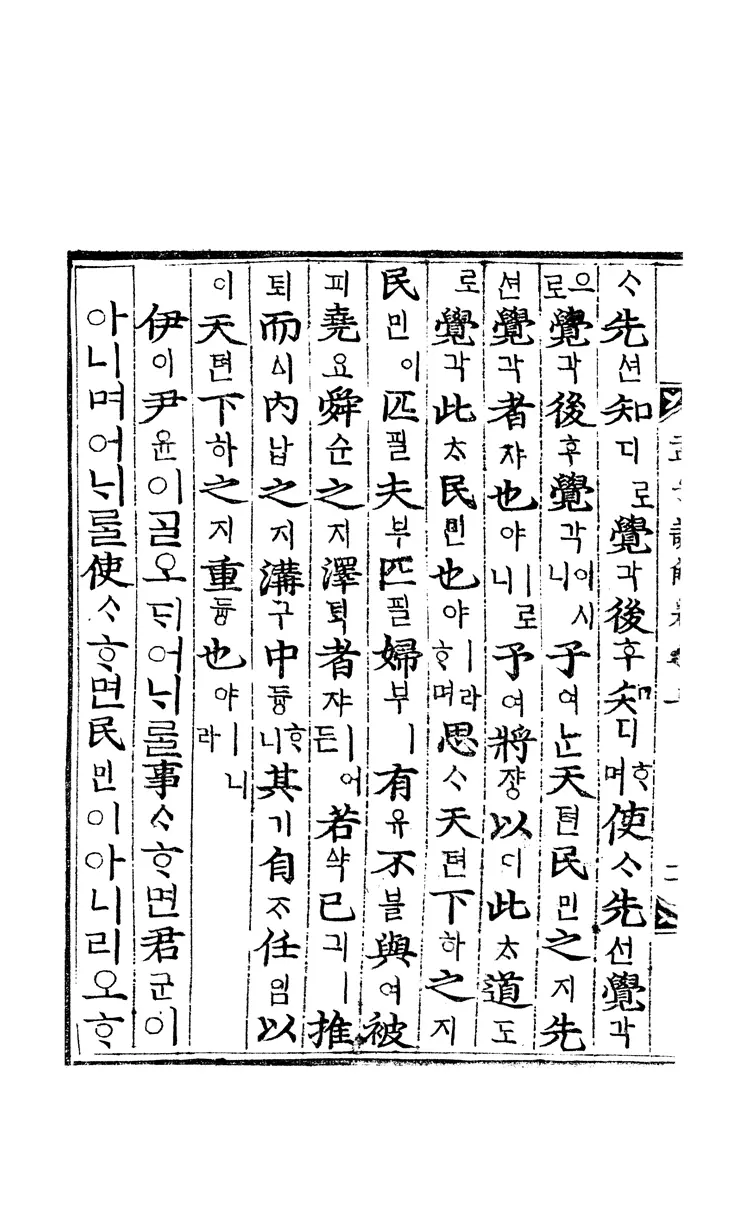 ᄉᆞ先션知디로覺각後후知디ᄒᆞ며使ᄉᆞ先선覺각
으로覺각後후覺각이시니予여ᄂᆞᆫ天텬民민之지先
션覺각者쟈也야ㅣ로니予여將쟝以이此ᄎᆞ道도
로覺각此ᄎᆞ民민也야ㅣ라ᄒᆞ며思ᄉᆞ天텬下하之지
民민이匹필夫부匹필婦부ㅣ有유不블與여被
피堯요舜슌之지澤ᄐᆡᆨ者쟈ㅣ어든若약己긔ㅣ推
퇴而ᅀᅵ内납之지溝구中듕ᄒᆞ니其기自ᄌᆞ任임以
이天텬下하之지重듕也야ㅣ니라
伊이尹윤이ᄀᆞᆯ오ᄃᆡ어ᄂᆡ를事ᄉᆞᄒᆞ면君군이
아니며어ᄂᆡ를使ᄉᆞᄒᆞ면民민이아니리오ᄒᆞ